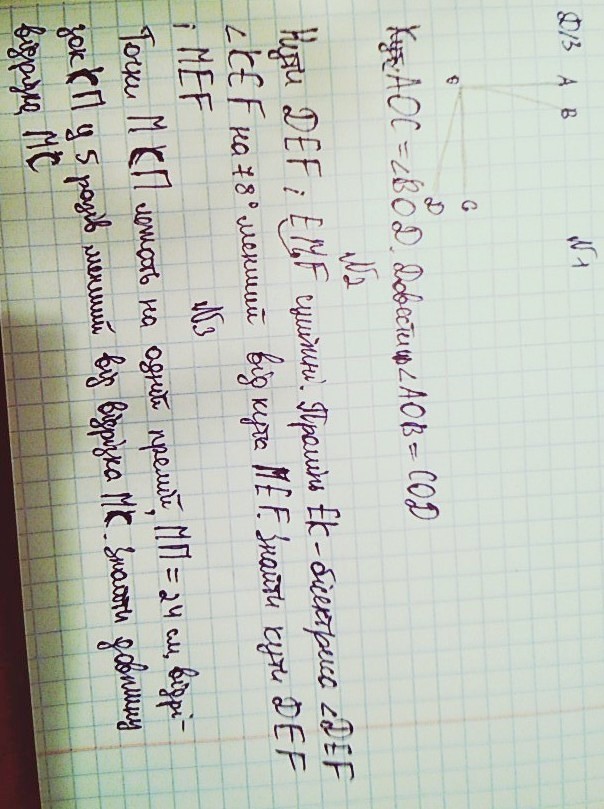 Д/З
№1
A
B
O
C
D
Кути AOC = ∠BOD. Довести ∠AOB = COD
№2
Кути DEF і EMF суміжні. Промінь EK - бісектриса ∠DEF
∠KEF на 78° менший від кута MEF. Знайти кути DEF
і MEF
№3
Точки М К П лежать на одній прямій, МП = 24 см, відрі-
зок КП у 5 разів менший від відрізка МК. Знайти довжину
відрізка МК